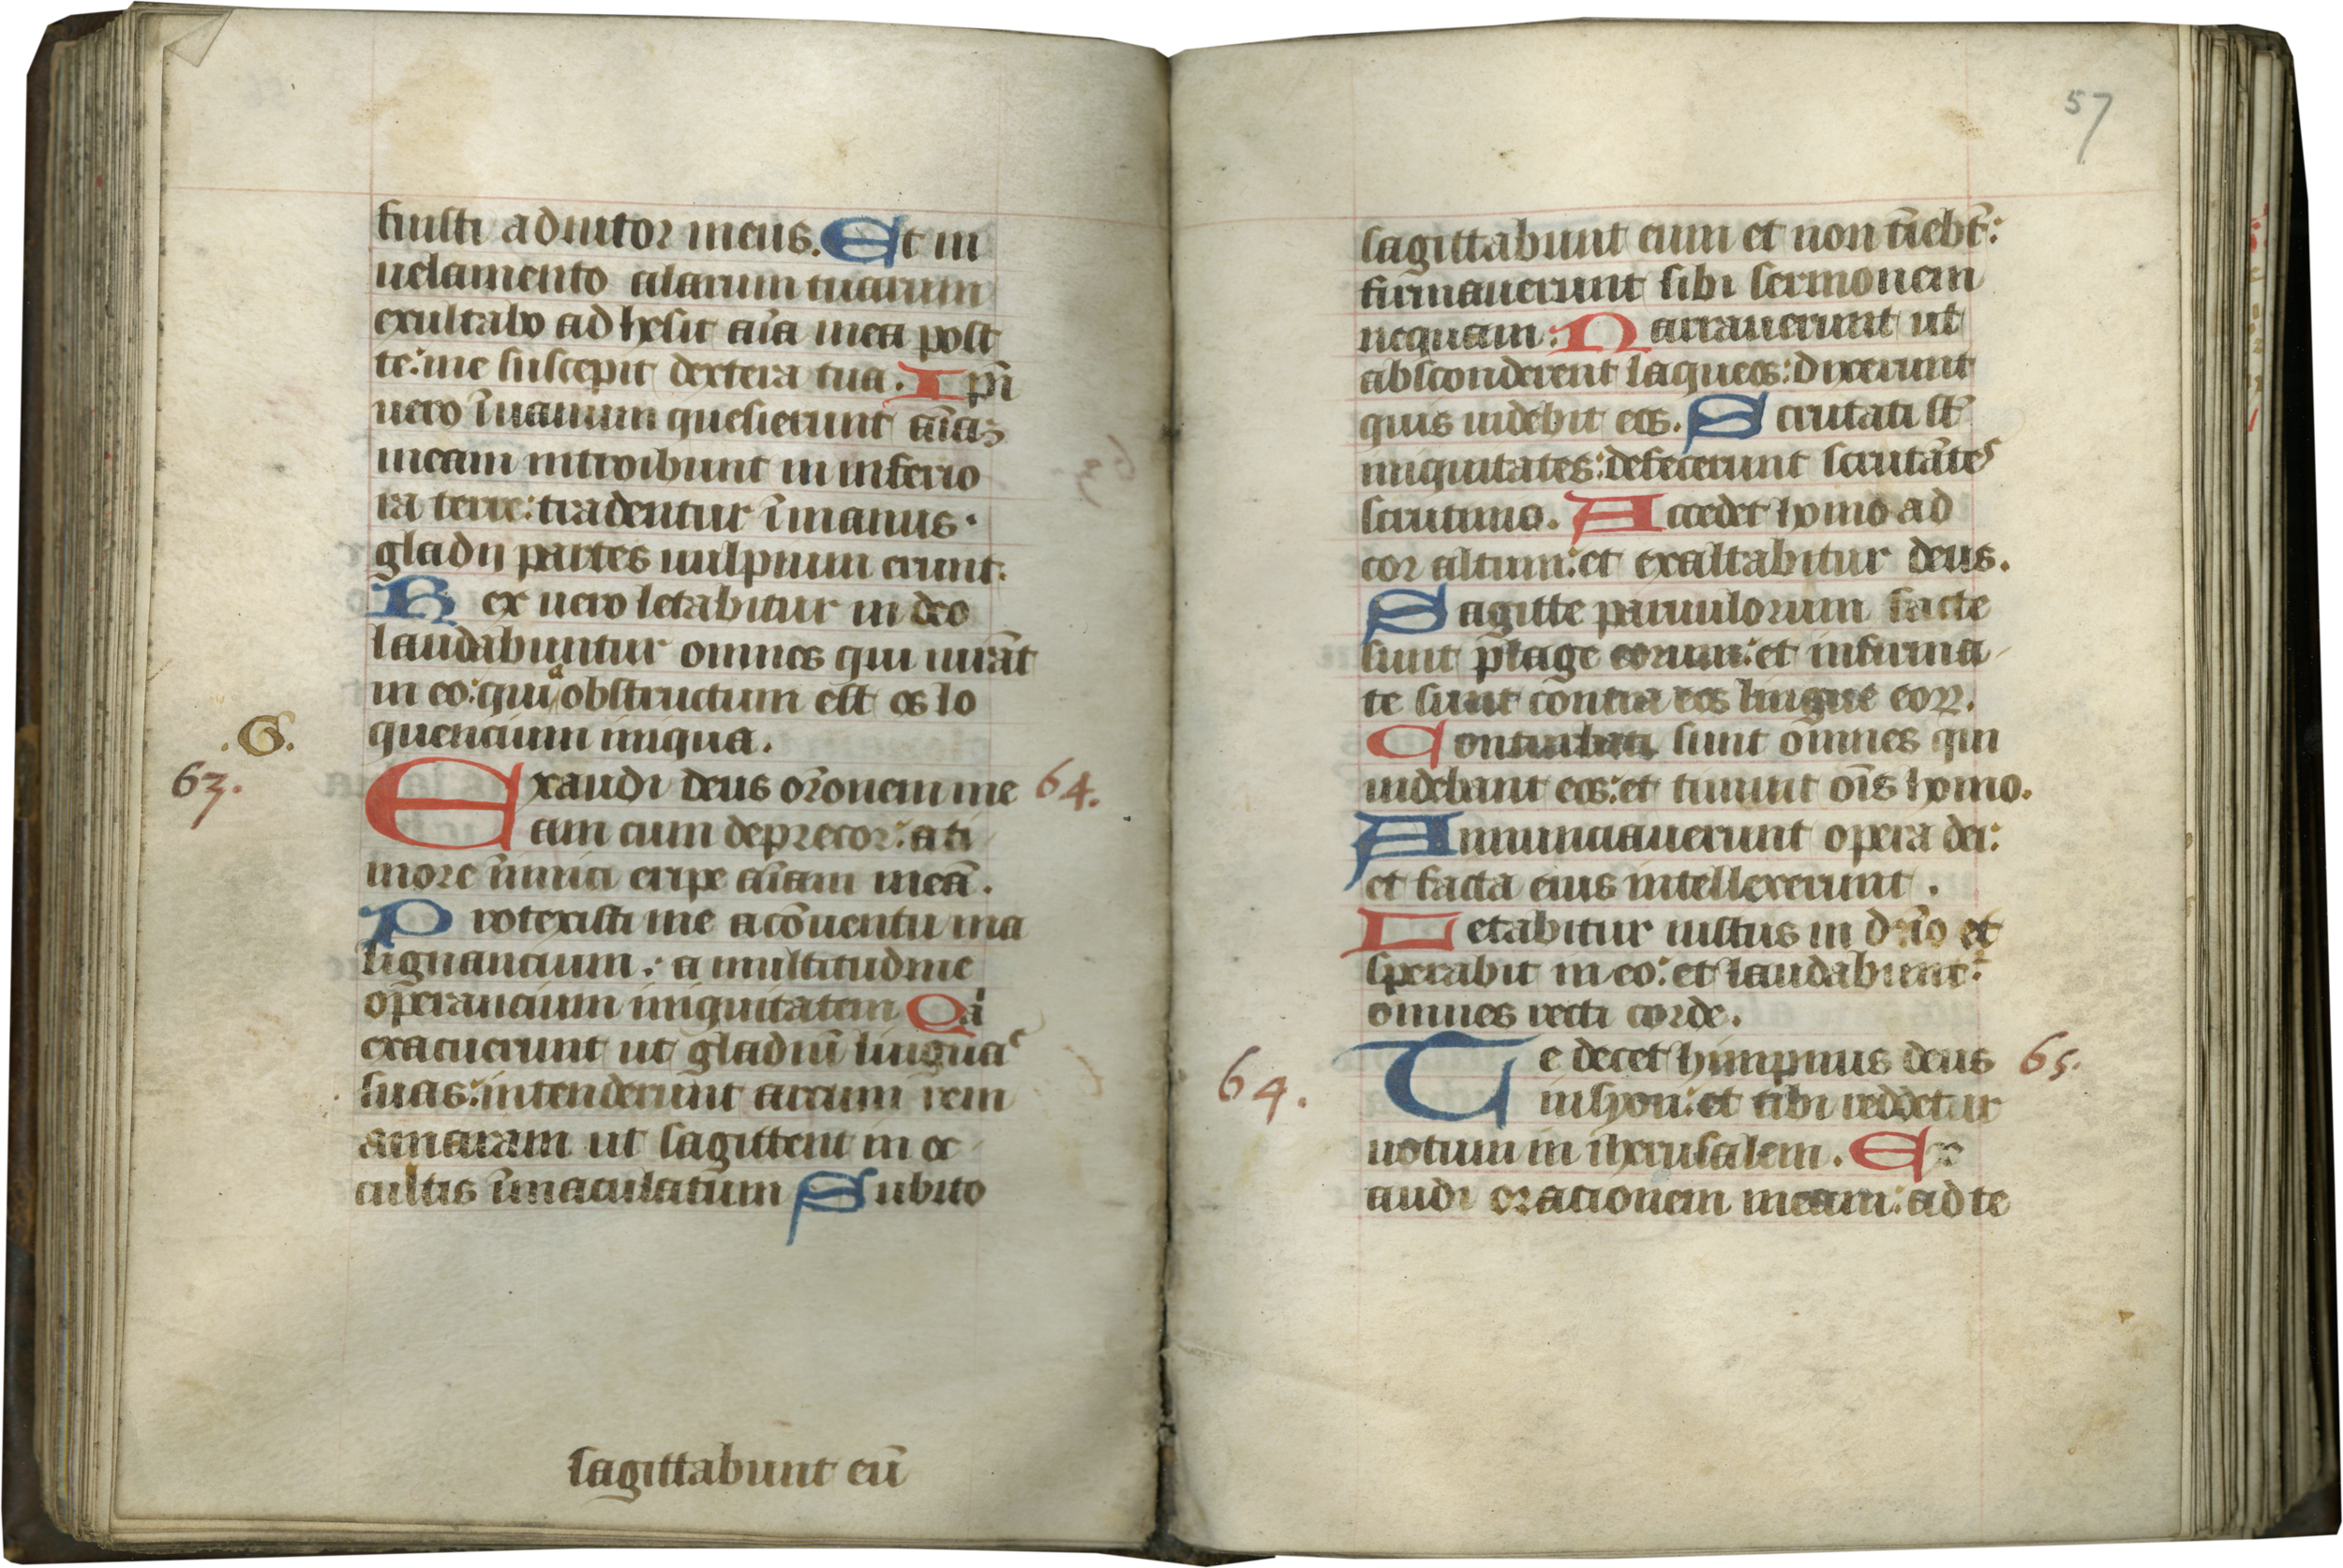 fuisti adiutor meus. Et in
uelamento alarum tuarum
exultabo adhesit aīa mea post
te: me suscepit dextera tua. Ip̄i
uero īuanum quesierunt aīaʒ
meam introibunt in inferio
ra terre: tradentur ī manus
gladij partes uulpium erunt.
Rex uero letabitur in deo
laudabuntur omnes qui iurāt
in eo: quiᵃ obstructum est os lo
quencium iniqua.
.G.
63.
Exaudi deus or̄onem me
64.
am cum deprecor: a ti
more īnimici eripe aīam meā.
Protexisti me a cōuentu ma
lignancium: a multitudine
operancium iniquitatem Qͥa
exacuerunt ut gladiū linguas
suas: intenderunt arcum rem
amaram ut sagittent in oc
cultis īmaculatum Subito
sagittabunt eū
57
sagittabunt eum et non tīebt̄:
firmauerunt sibi sermonem
nequam: Narrauerunt ut
absconderent laqueos: dixerunt
quis uidebit eos. Scrutati st̄
iniquitates: defecerunt scrutātes
scrutinio. Accedet homo ad
cor altum: et exaltabitur deus.
Sagitte paruulorum facte
sunt plage eorum: et infirma
te sunt contra eos lingue eoꝝ.
Conturbati sunt omnes qui
uidebant eos: et timuit oīs homo.
Annunciauerunt opera dei:
et facta eius intellexerunt.
Letabitur iustus in dn̄o et
sperabit in eo: et laudabuntᷣ
omnes recti corde.
64.
Te decet himpnus deus
65.
in syon: et tibi reddetur
uotum in iherusalem. Ex
audi oracionem meam: ad te